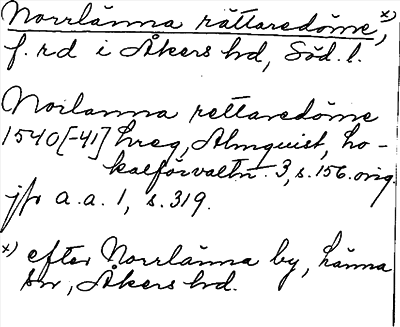 Norrlänna rättaredöme, x)
f. rd i Åkers hd, Söd. l.
Norlanna rettaredöme
1540[-41] hreg, Almquist, Lo-
kalförvaltn. 3, s. 156. orig.
jfr a.a. 1, s. 319.
x) efter Norrlänna by, Länna
sn, Åkers hd.